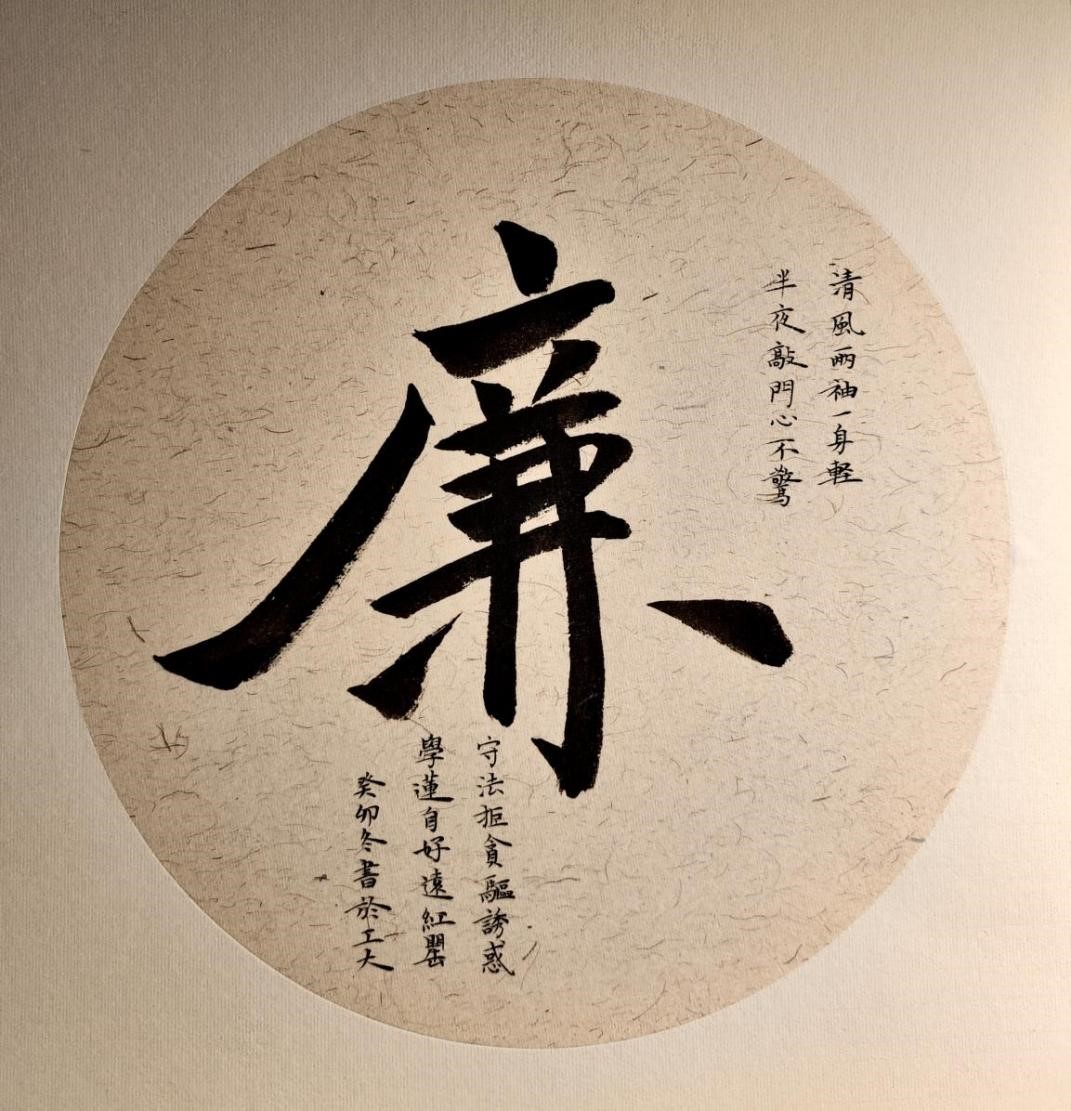 廉
清風兩袖一身輕
半夜敲門心不驚
守法拒貪驅誘惑
學蓮自好遠紅罌
癸卯冬書於工大